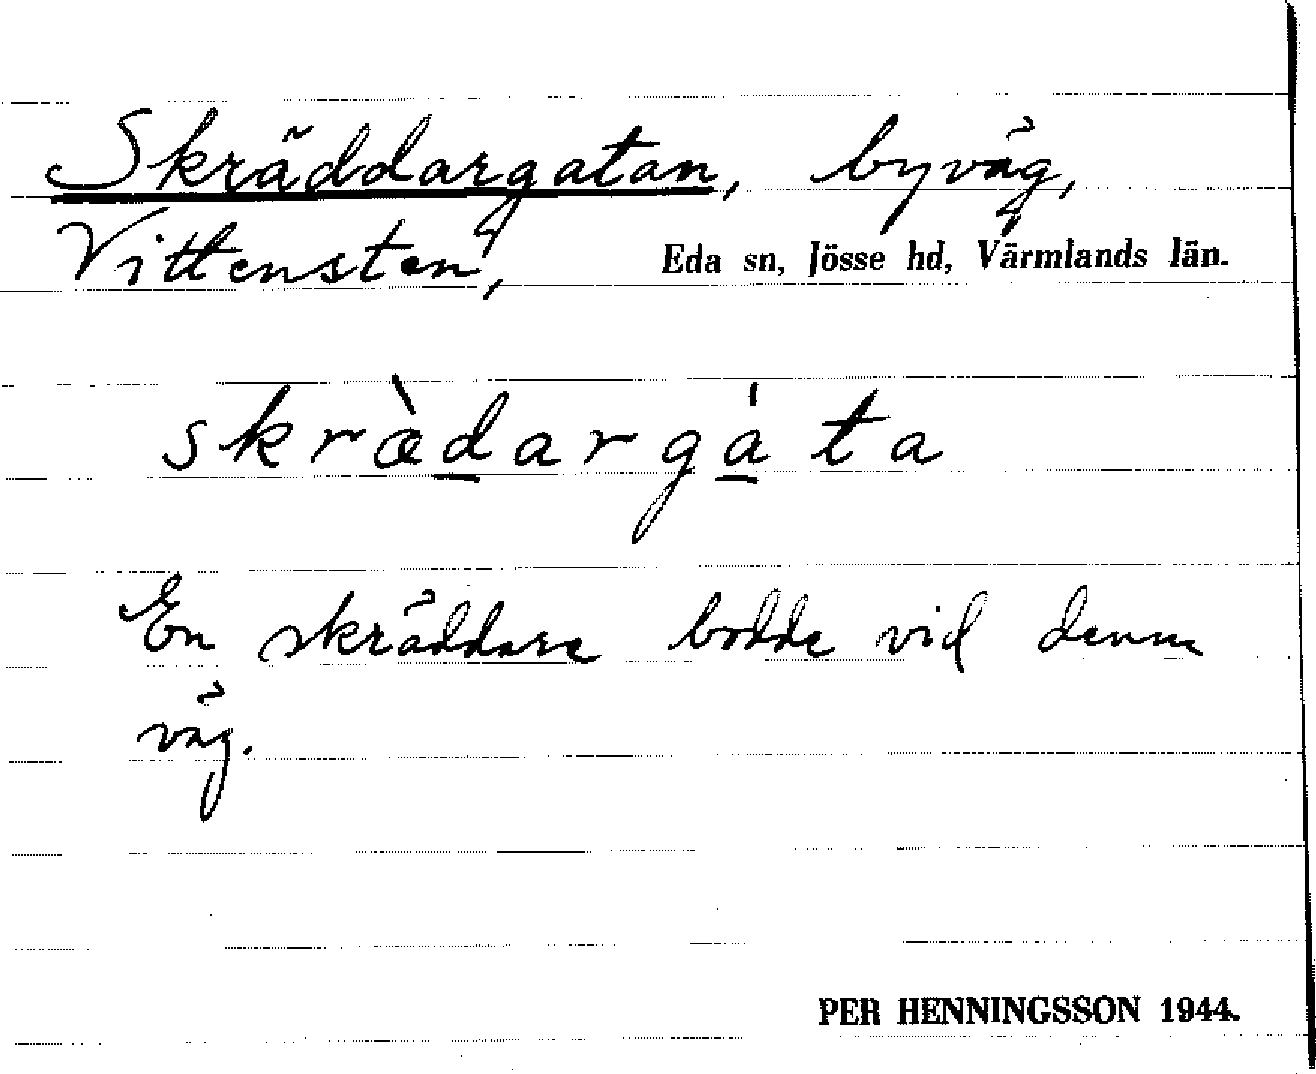 Skräddargatan, byväg,
Vittensten, Eda sn, Jösse hd, Värmlands län.
skræ̀d̲arga̲̍ta
En skräddare bodde vid denna
väg.
PER HENNINGSSON 1944.